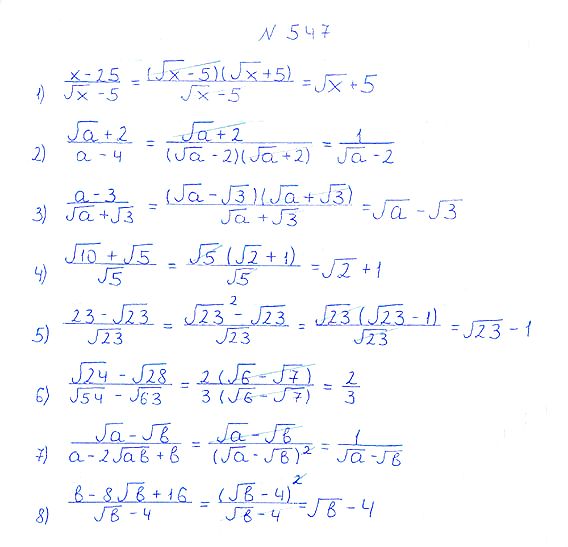 N 547
1) \frac{x-25}{\sqrt{x}-5} = \frac{(\sqrt{x}-5)(\sqrt{x}+5)}{\sqrt{x}-5} = \sqrt{x}+5
2) \frac{\sqrt{a}+2}{a-4} = \frac{\sqrt{a}+2}{(\sqrt{a}-2)(\sqrt{a}+2)} = \frac{1}{\sqrt{a}-2}
3) \frac{a-3}{\sqrt{a}+\sqrt{3}} = \frac{(\sqrt{a}-\sqrt{3})(\sqrt{a}+\sqrt{3})}{\sqrt{a}+\sqrt{3}} = \sqrt{a}-\sqrt{3}
4) \frac{\sqrt{10}+\sqrt{5}}{\sqrt{5}} = \frac{\sqrt{5}(\sqrt{2}+1)}{\sqrt{5}} = \sqrt{2}+1
5) \frac{23-\sqrt{23}}{\sqrt{23}} = \frac{\sqrt{23}^2-\sqrt{23}}{\sqrt{23}} = \frac{\sqrt{23}(\sqrt{23}-1)}{\sqrt{23}} = \sqrt{23}-1
6) \frac{\sqrt{24}-\sqrt{28}}{\sqrt{54}-\sqrt{63}} = \frac{2(\sqrt{6}-\sqrt{7})}{3(\sqrt{6}-\sqrt{7})} = \frac{2}{3}
7) \frac{\sqrt{a}-\sqrt{b}}{a-2\sqrt{ab}+b} = \frac{\sqrt{a}-\sqrt{b}}{(\sqrt{a}-\sqrt{b})^2} = \frac{1}{\sqrt{a}-\sqrt{b}}
8) \frac{b-8\sqrt{b}+16}{\sqrt{b}-4} = \frac{(\sqrt{b}-4)^2}{\sqrt{b}-4} = \sqrt{b}-4